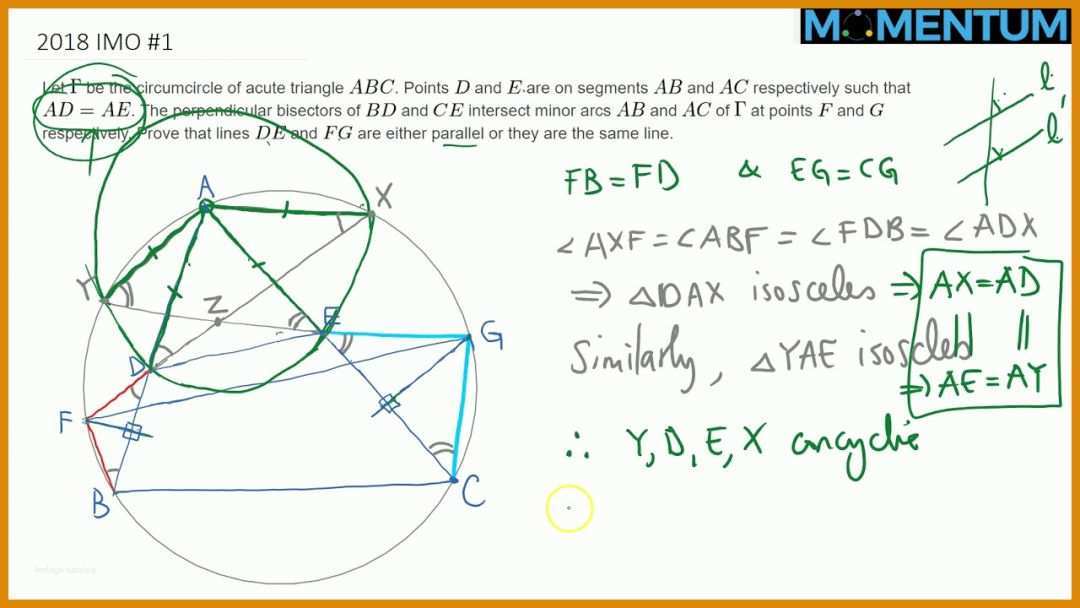 MOMENTUM
2018 IMO #1
Let Γ be the circumcircle of acute triangle ABC. Points D and E are on segments AB and AC respectively such that
AD = AE. The perpendicular bisectors of BD and CE intersect minor arcs AB and AC of Γ at points F and G
respectively. Prove that lines DE and FG are either parallel or they are the same line.
l
l'
FB=FD & EG=CG
∠AXF=∠ABF=∠FDB=∠ADX
⇒ △DAX isosceles ⇒ AX=AD
||
||
Similarly, △YAE isosceles
⇒ AE=AY
∴ Y,D,E,X concyclic
A
X
Y
Z
E
G
D
F
B
C